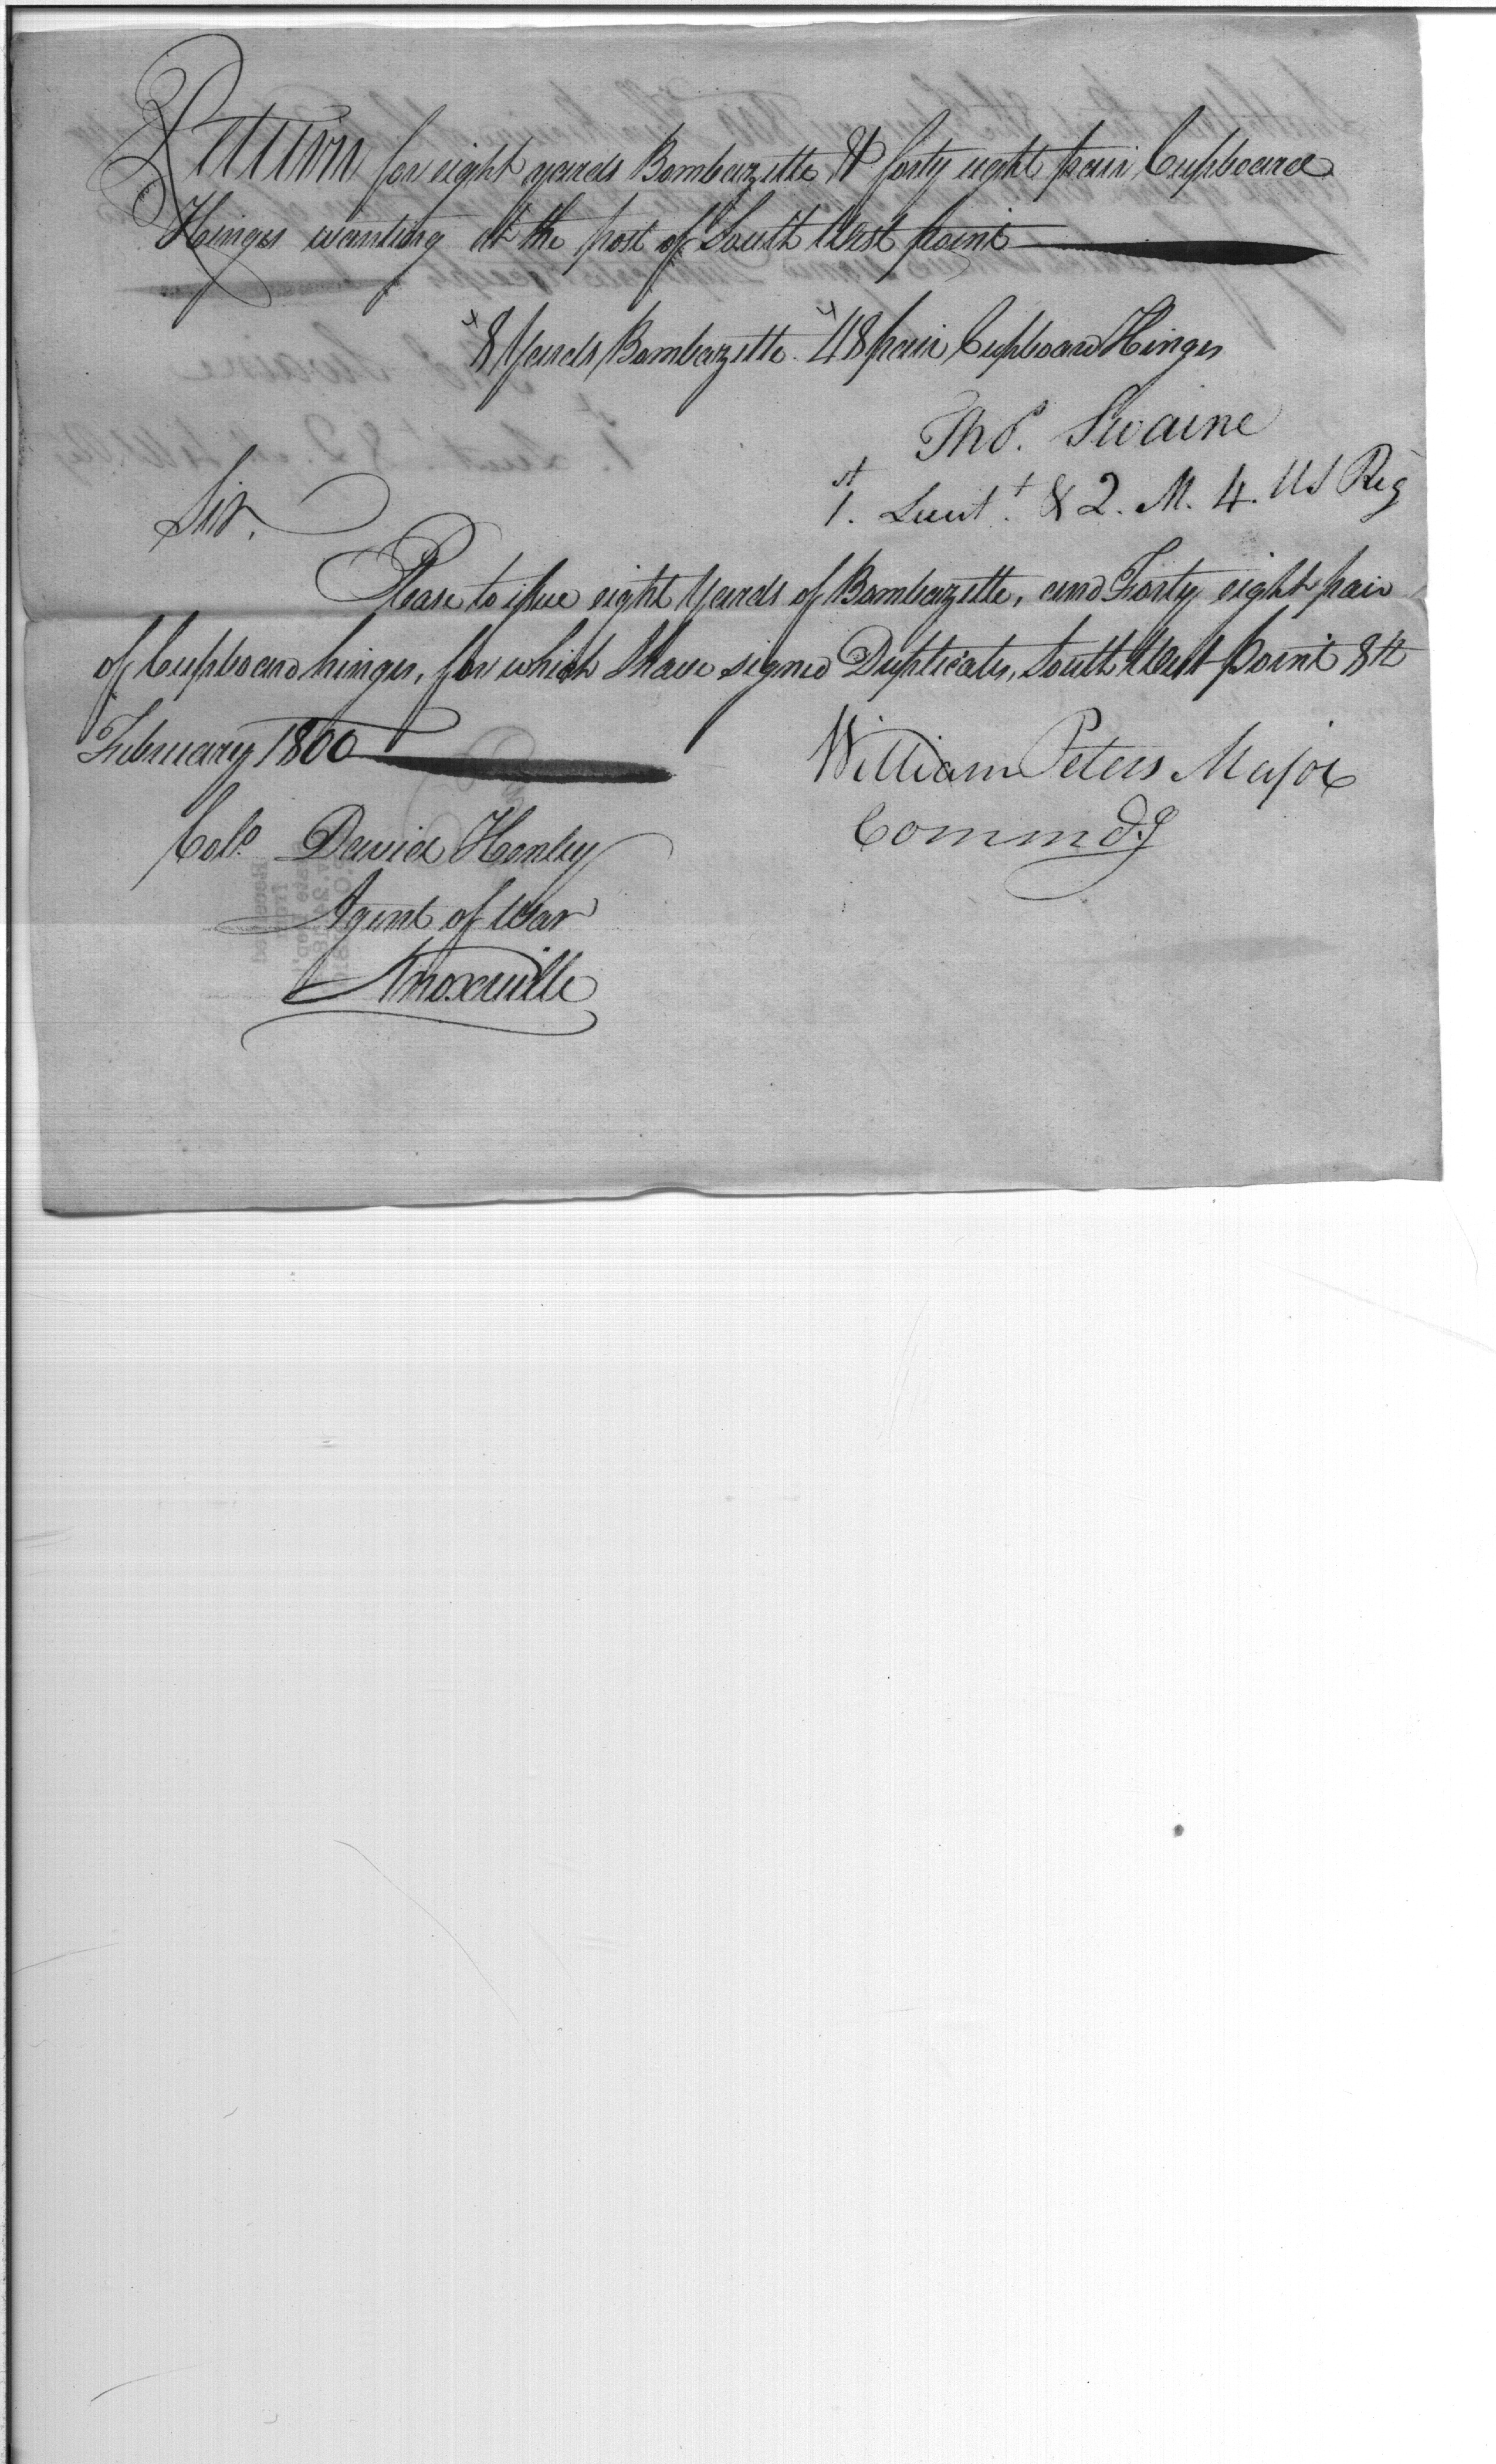 Return for eight yards Bombazette & forty eight pair Cupboard
Hinges wanting at the post of South West point
8 Yards Bombazette. 48 pair Cupboard Hinges
Thos. Swaine
1.st Lieut.t & 2. M. 4. US Reg
Sir.
Please to issue eight Yards of Bombazette, and Forty eight pair
of Cupboard hinges, for which I have signed Duplicates, South West Point 8th
February 1800
William Peters Major
Commdg
Colo. David Henley
Agent of War
Knoxville